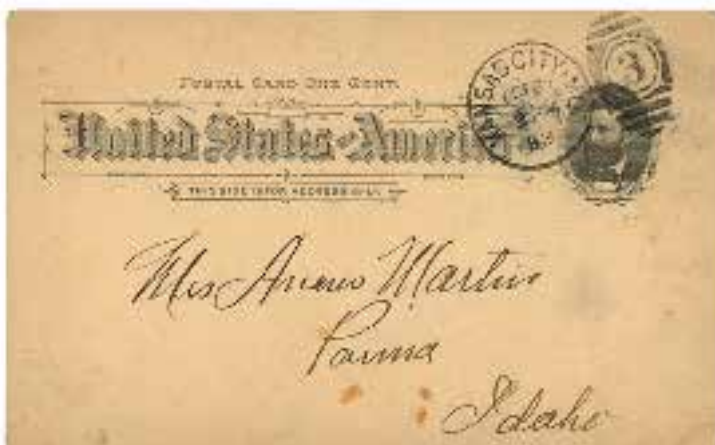 POSTAL CARD ONE CENT.
United States of America
THIS SIDE IS FOR ADDRESS ONLY.
KANSAS CITY
3
Martin
Parma
Idaho